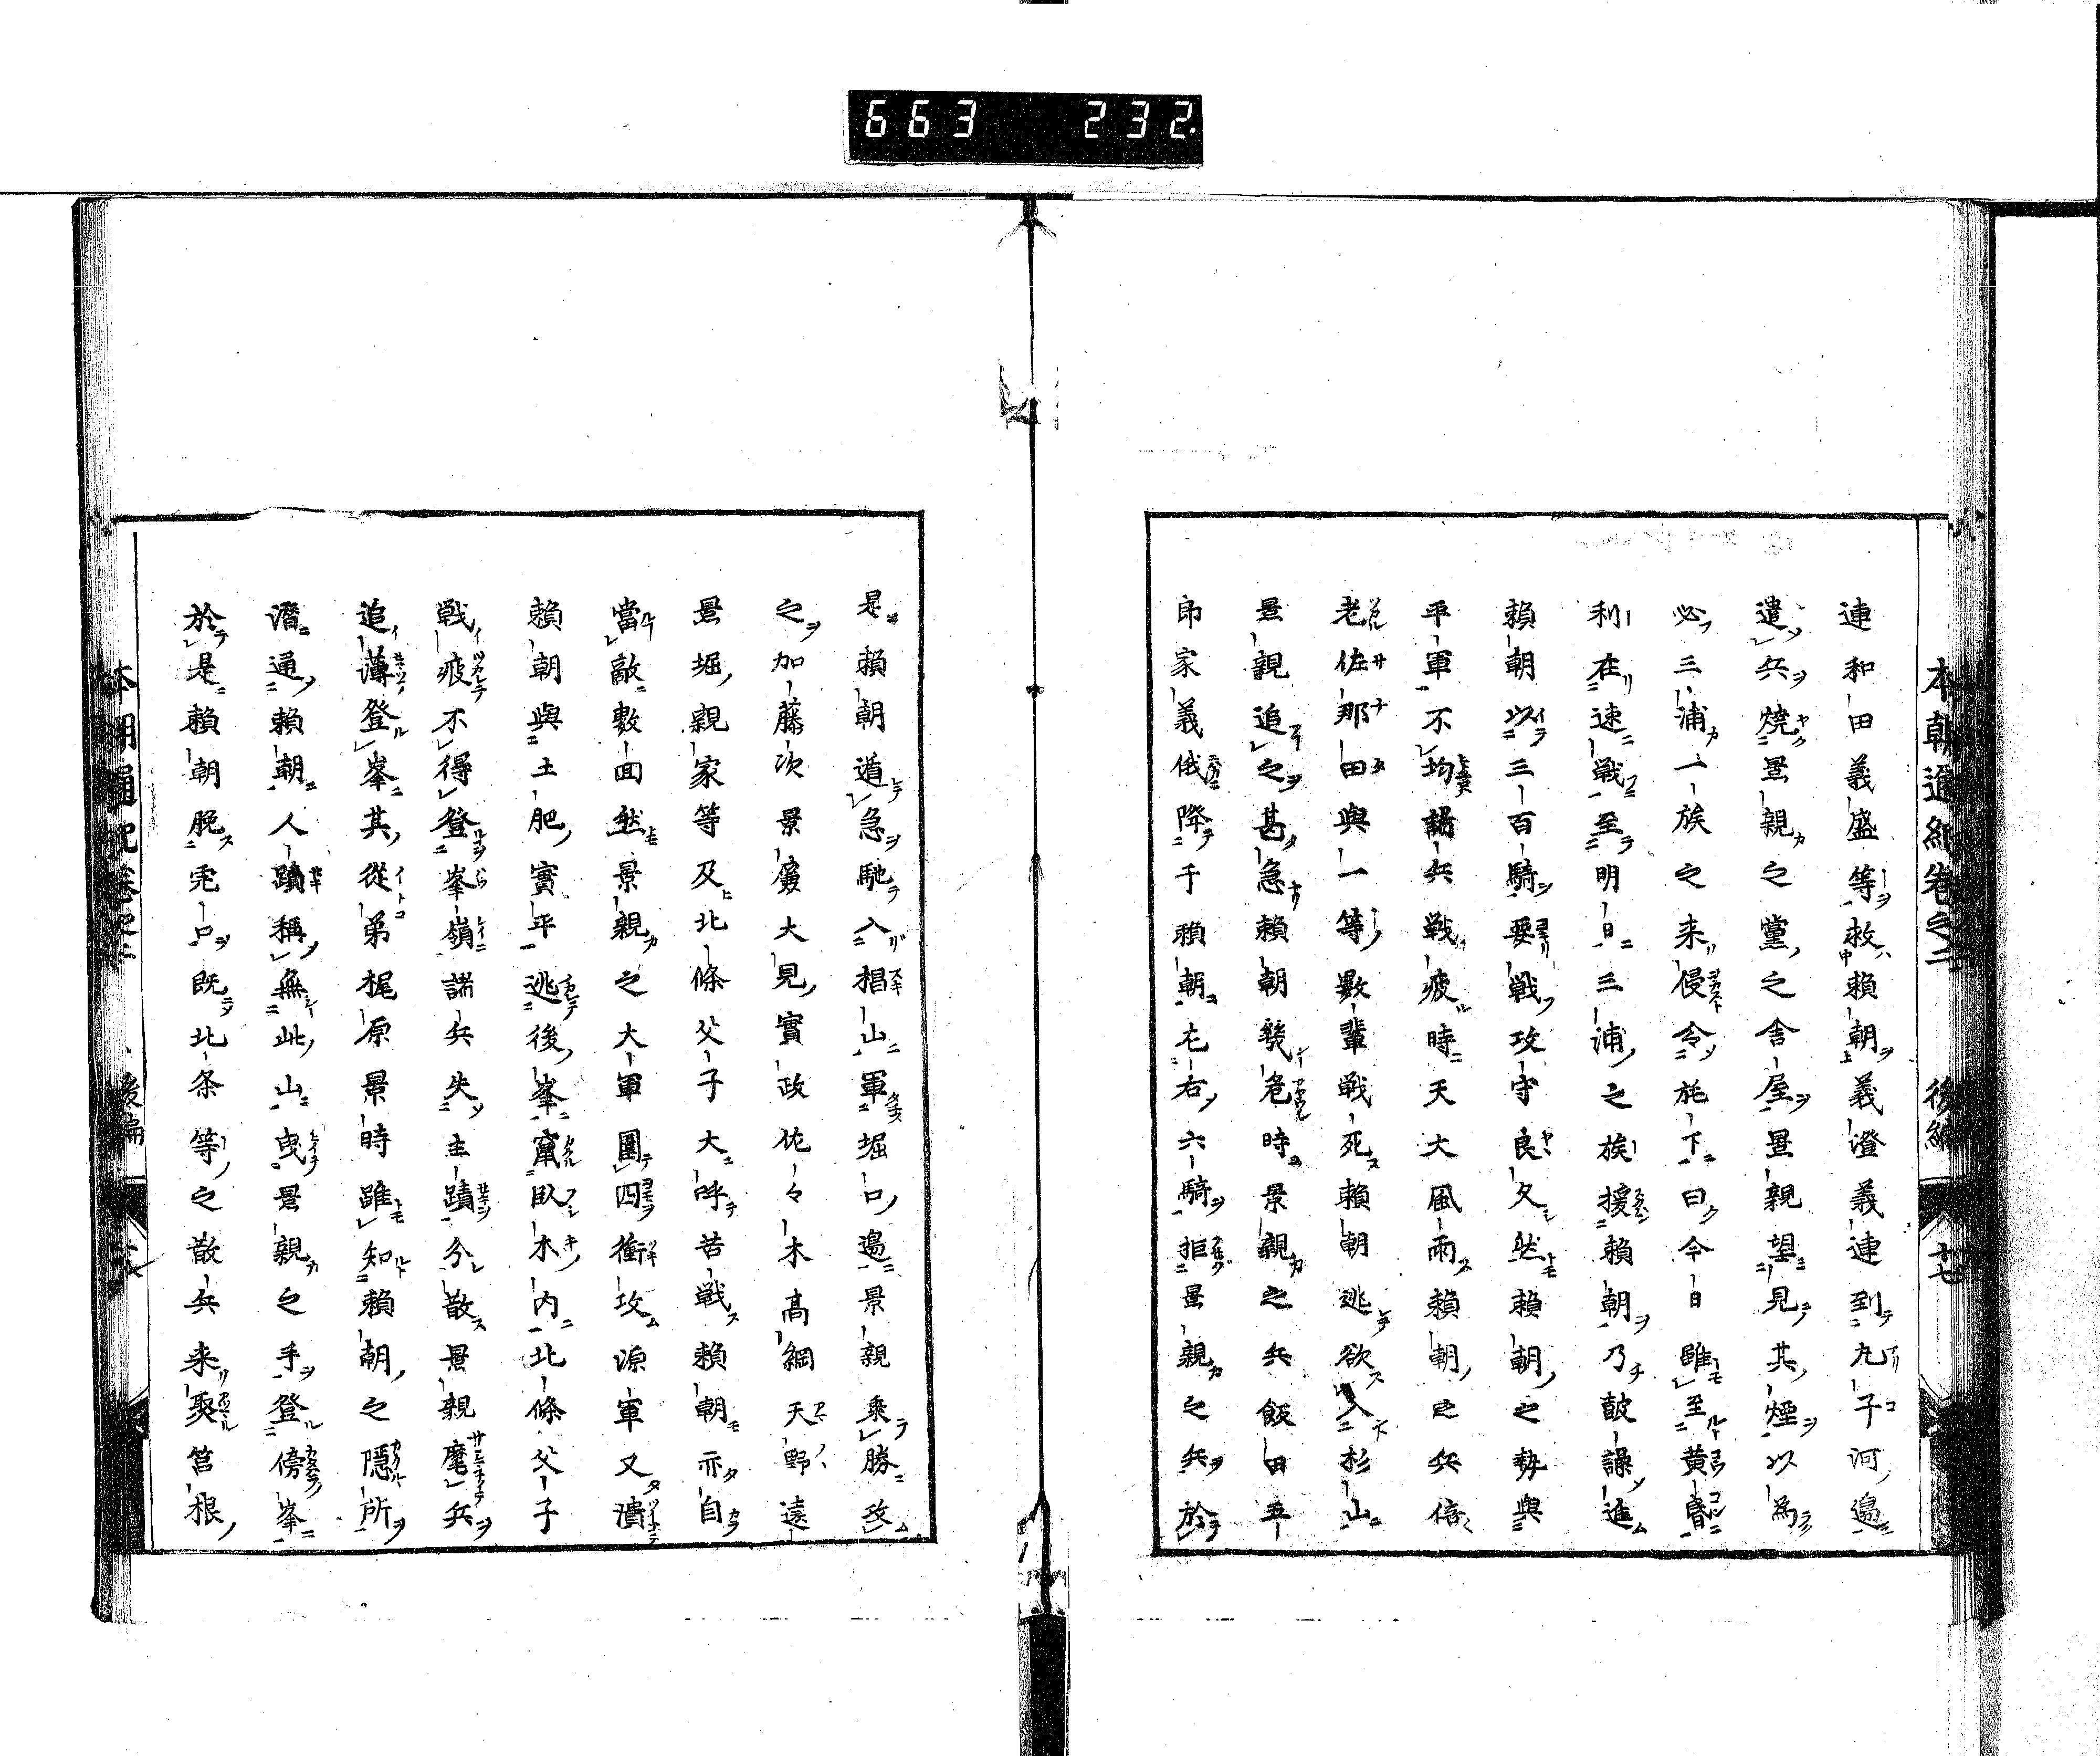 663 232
本朝通紀卷之二 後編 十七
連和田義盛等救賴朝義澄義連到九子河邉
遣兵燒景親之黨之舎屋景親望見其煙以爲
必三浦一族之来侵令於下曰今日雖至黄昏
利在速戰至明日三浦之族援賴朝乃鼓譟進
賴朝以三百騎要戰攻守良久然賴朝之勢與
平軍不均諸兵戰疲時天大風雨賴朝之兵倍
老佐那田與一等數輩戰死賴朝逃欲入杉山
景親追之甚急賴朝幾危時景親之兵飯田五
郎家義俄降于賴朝左右六騎拒景親之兵於
是賴朝遁急馳入椙山軍堀口邉景親乘勝攻
之加藤次景廉大見實政佐々木髙綱天野遠
景堀親家等及北條父子大呼苦戰賴朝亦自
當敵數回然景親之大軍圍四衝攻源軍又潰
賴朝與土肥實平逃後峯竄臥木内北條父子
戰疲不得登峯嶺諸兵失主蹟分散景親麾兵
追薄登峯其從弟梶原景時雖知賴朝之隱所
潛通賴朝人蹟稱無此山曳景親之手登傍峯
於是賴朝脱虎口既北条等之散兵来聚筥根
本朝通紀卷之二 後編